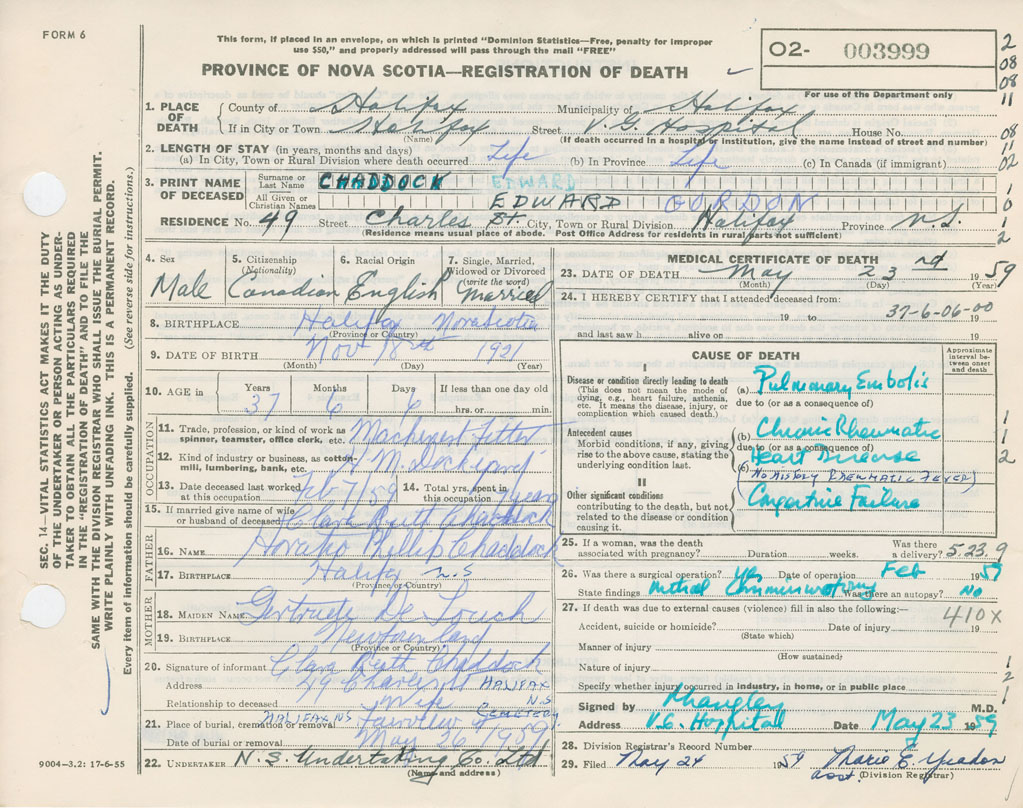 FORM 6
This form, if placed in an envelope, on which is printed "Dominion Statistics—Free, penalty for improper
use $50," and properly addressed will pass through the mail "FREE"
PROVINCE OF NOVA SCOTIA—REGISTRATION OF DEATH
O2- 003999
For use of the Department only
2
08
08
11
08
11
02
1
0
1
2
1. PLACE OF DEATH County of Halifax Municipality of Halifax
If in City or Town Halifax Street V.G. Hospital House No.
(Name) (If death occurred in a hospital or institution, give the name instead of street and number)
2. LENGTH OF STAY (in years, months and days)
(a) In City, Town or Rural Division where death occurred Life (b) In Province Life (c) In Canada (if immigrant)
3. PRINT NAME OF DECEASED Surname or Last Name CHADDOCK EDWARD
All Given or Christian Names EDWARD GORDON
RESIDENCE No. 49 Street Charles St. City, Town or Rural Division Halifax Province N.S.
(Residence means usual place of abode. Post Office Address for residents in rural parts not sufficient)
4. Sex Male
5. Citizenship (Nationality) Canadian
6. Racial Origin English
7. Single, Married, Widowed or Divorced (write the word) Married
8. BIRTHPLACE Halifax Nova Scotia
(Province or Country)
9. DATE OF BIRTH Nov 1921
(Month) (Day) (Year)
10. AGE in Years Months Days If less than one day old
37 6 6 hrs. or min.
OCCUPATION
11. Trade, profession, or kind of work as spinner, teamster, office clerk, etc. Machinest Fitter
12. Kind of industry or business, as cotton-mill, lumbering, bank, etc. H M. Dockyard
13. Date deceased last worked at this occupation Feb 7/59 14. Total yrs. spent in this occupation years
15. If married give name of wife or husband of deceased Clara Ruth Chaddock
FATHER
16. NAME Horatio Phillip Chaddock
17. BIRTHPLACE Halifax N.S
(Province or Country)
MOTHER
18. MAIDEN NAME Gertrude De
19. BIRTHPLACE Newfounland
(Province or Country)
20. Signature of informant Clara Ruth Chaddock
Address 49 Charles St HALIFAX N.S
Relationship to deceased Wife
21. Place of burial, cremation or removal HALIFAX NS Fairview CEMETERY
Date of burial or removal May 26 1959
22. UNDERTAKER N.S. Undertaking Co. Ltd
(Name and address)
MEDICAL CERTIFICATE OF DEATH
23. DATE OF DEATH May 23rd 1959
(Month) (Day) (Year)
24. I HEREBY CERTIFY that I attended deceased from:
19 to 37-6-06-00 19
and last saw h alive on 19
CAUSE OF DEATH
Approximate interval between onset and death
I
Disease or condition directly leading to death
(This does not mean the mode of dying, e.g., heart failure, asthenia, etc. It means the disease, injury, or complication which caused death.)
(a) Pulmonary Embolis
due to (or as a consequence of)
Antecedent causes
Morbid conditions, if any, giving rise to the above cause, stating the underlying condition last.
(b) Chronic Rheumatic
due to (or as a consequence of)
Heart Disease
(c) (NO HISTORY RHEUMATIC FEVER)
II
Other significant conditions
contributing to the death, but not related to the disease or condition causing it.
Congestive Failure
1
1
2
25. If a woman, was the death associated with pregnancy? Duration weeks. Was there a delivery? 5.23.9
26. Was there a surgical operation? Yes Date of operation Feb 1959
State findings Mitral Was there an autopsy? No
27. If death was due to external causes (violence) fill in also the following:—
410X
Accident, suicide or homicide? Date of injury 19
(State which)
Manner of injury
(How sustained)
Nature of injury
Specify whether injury occurred in industry, in home, or in public place
1
2
1
Signed by M.D.
Address V.G. Hospital Date May 23 1959
28. Division Registrar's Record Number
29. Filed May 24 1959 Marie E. Yeadon
asst. (Division Registrar)
9004—3.2: 17-6-55
SEC. 14—VITAL STATISTICS ACT MAKES IT THE DUTY
OF THE UNDERTAKER OR PERSON ACTING AS UNDER-
TAKER TO OBTAIN ALL THE PARTICULARS REQUIRED
IN THE "REGISTRATION OF DEATH" AND TO FILE THE
SAME WITH THE DIVISION REGISTRAR WHO SHALL ISSUE THE BURIAL PERMIT.
WRITE PLAINLY WITH UNFADING INK. THIS IS A PERMANENT RECORD.
Every item of information should be carefully supplied. (See reverse side for instructions.)